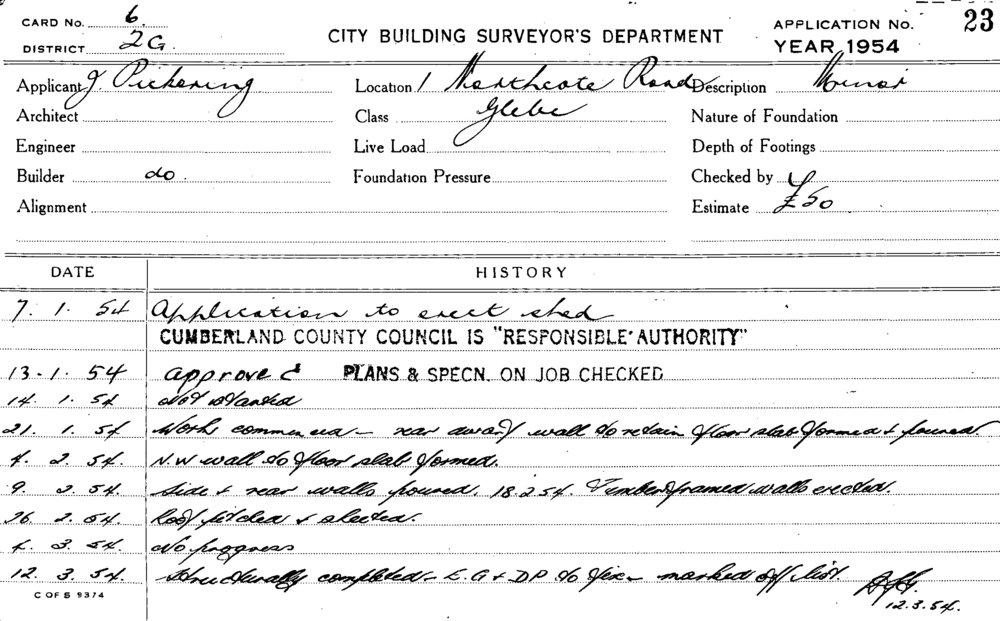 CARD No. 6. CITY BUILDING SURVEYOR'S DEPARTMENT APPLICATION No. 23
DISTRICT 2G. YEAR 1954
Applicant J. Pickering Location 1 Northcote Road Description Minor
Architect Class Glebe Nature of Foundation
Engineer Live Load Depth of Footings
Builder do. Foundation Pressure Checked by
Alignment Estimate £50
DATE HISTORY
7. 1. 54 Application to erect shed
CUMBERLAND COUNTY COUNCIL IS "RESPONSIBLE AUTHORITY"
13-1. 54 Approved PLANS & SPECN. ON JOB CHECKED
14. 1. 54 Not started
21. 1. 54 Works commenced - rear wall to retain floor slab formed & poured.
4. 2. 54. N.W wall to floor slab formed.
9. 2. 54. Side & rear walls poured. 18.2.54. Timber framed walls erected.
26. 2. 54. Roof pitched & sheeted.
4. 3. 54. No progress
12. 3. 54. Structurally completed - E.G & D.P to fix - marked off list.
12.3.54.
C OF S 9374